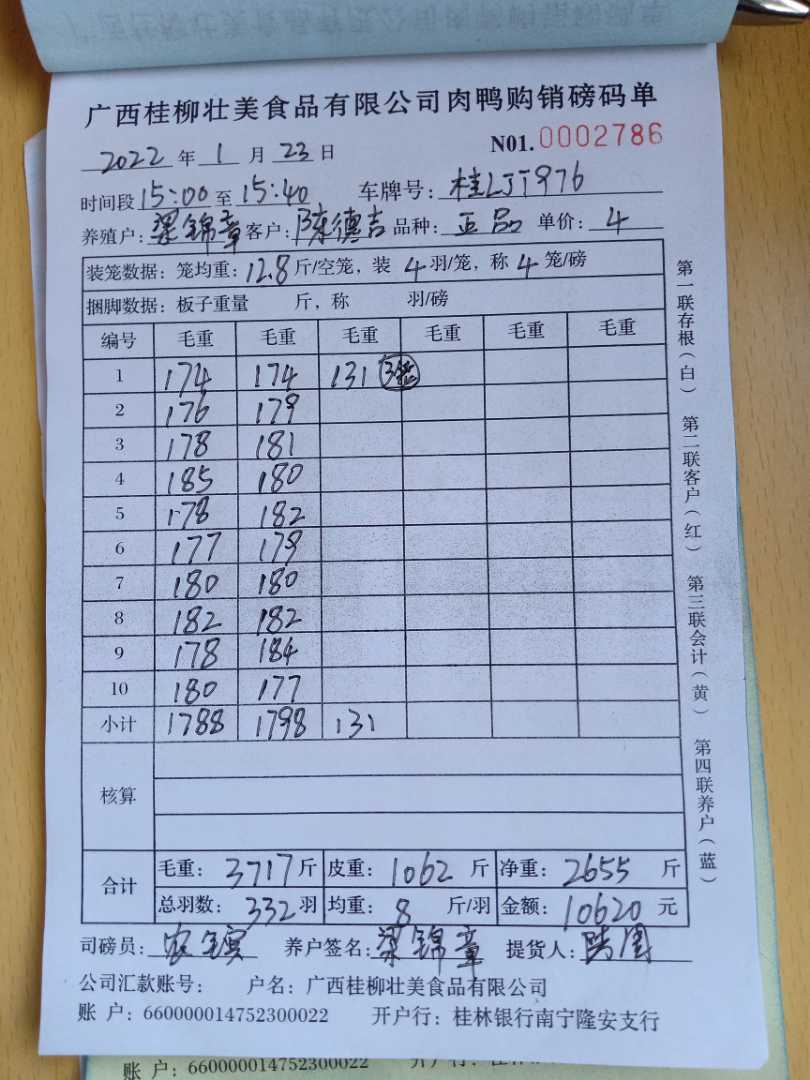 广西桂柳壮美食品有限公司肉鸭购销磅码单
2022 年 1 月 23 日 N01. 0002786
时间段 15:00 至 15:40 车牌号: 桂LJT976
养殖户: 梁锦章 客户: 陈德吉 品种: 正品 单价: 4
装笼数据: 笼均重: 12.8 斤/空笼, 装 4 羽/笼, 称 4 笼/磅
捆脚数据: 板子重量 斤, 称 羽/磅
编号 毛重 毛重 毛重 毛重 毛重 毛重
1 174 174 131 3笼
2 176 179
3 178 181
4 185 180
5 178 182
6 177 179
7 180 180
8 182 182
9 178 184
10 180 177
小计 1788 1798 131
核算
合计 毛重: 3717 斤 皮重: 1062 斤 净重: 2655 斤
总羽数: 332 羽 均重: 8 斤/羽 金额: 10620 元
司磅员: 养户签名: 梁锦章 提货人:
公司汇款账号: 户名: 广西桂柳壮美食品有限公司
账 户: 660000014752300022 开户行: 桂林银行南宁隆安支行
账 户: 660000014752300022
第一联存根(白) 第二联客户(红) 第三联会计(黄) 第四联养户(蓝)